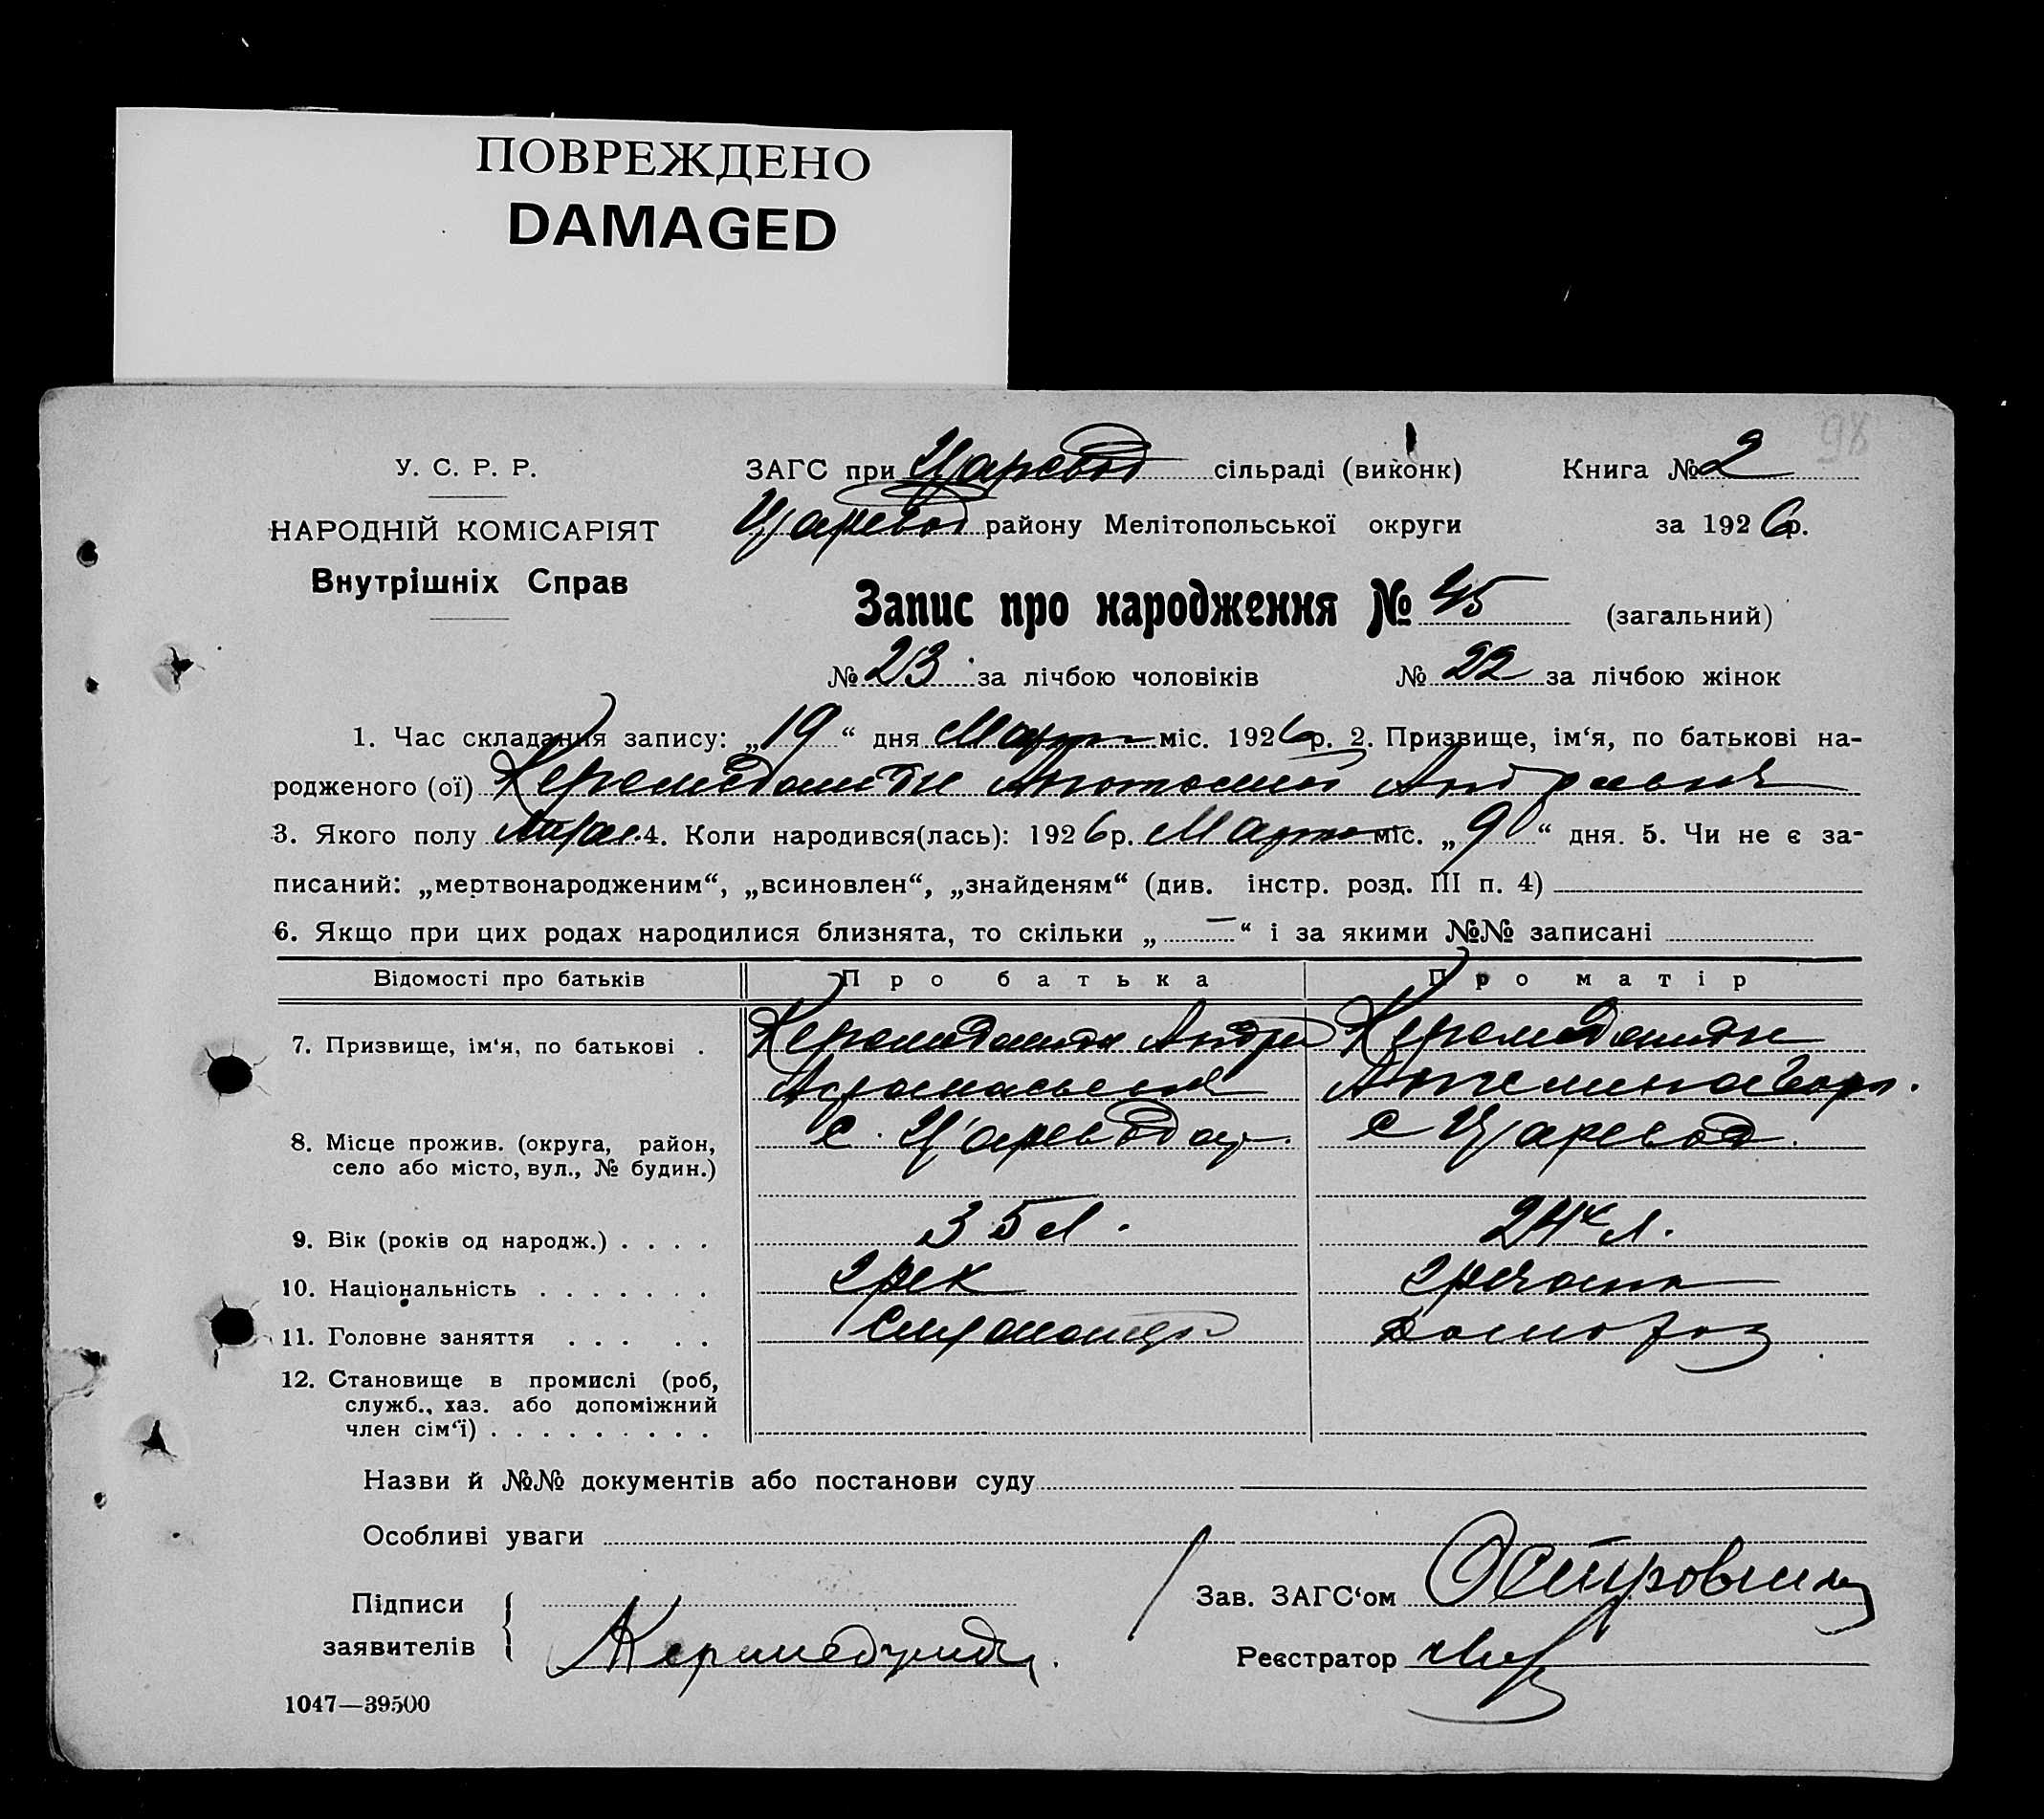 ПОВРЕЖДЕНО
DAMAGED
98
У. С. Р. Р.
НАРОДНІЙ КОМІСАРІЯТ
Внутрішніх Справ
ЗАГС при Царевод сільраді (виконк) Книга № 2
Царевод району Мелітопольської округи за 1926 р.
Запис про народження № 45 (загальний)
№ 23 за лічбою чоловіків № 22 за лічбою жінок
1. Час складання запису: „19“ дня Март міс. 1926 р. 2. Призвище, ім‘я, по батькові на-
родженого (ої) Анатолий Андреевич
3. Якого полу 4. Коли народився(лась): 1926 р. Марта міс. „9“ дня. 5. Чи не є за-
писаний: „мертвонародженим“, „всиновлен“, „знайденям“ (див. інстр. розд. III п. 4)
6. Якщо при цих родах народилися близнята, то скільки „—“ і за якими №№ записані
Відомості про батьків Про батька Про матір
7. Призвище, ім‘я, по батькові . Андрей
8. Місце прожив. (округа, район, с. Царевод с Царевод.
село або місто, вул., № будин.)
9. Вік (років од народж.) . . . . 35 л. 24 л.
10. Національність . . . . . . . грек гречанка
11. Головне заняття . . . . .
12. Становище в промислі (роб,
служб., хаз. або допоміжний
член сім‘ї) . . . . . . . . .
Назви й №№ документів або постанови суду
Особливі уваги
Підписи
заявителів
Зав. ЗАГС‘ом
Реєстратор
1047—39500